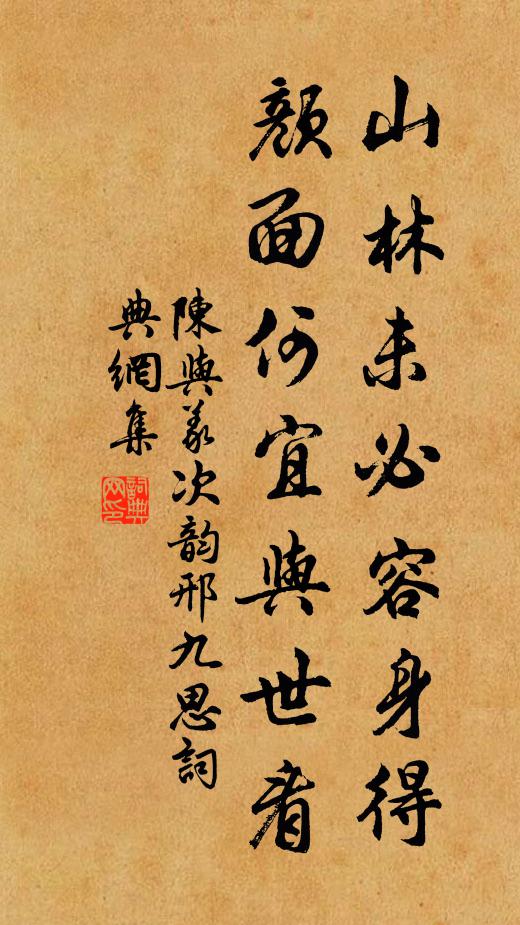 山林未必容身得
顔面何宜與世看
陳與義次韵邢九思詞
典網集
詞典
网印